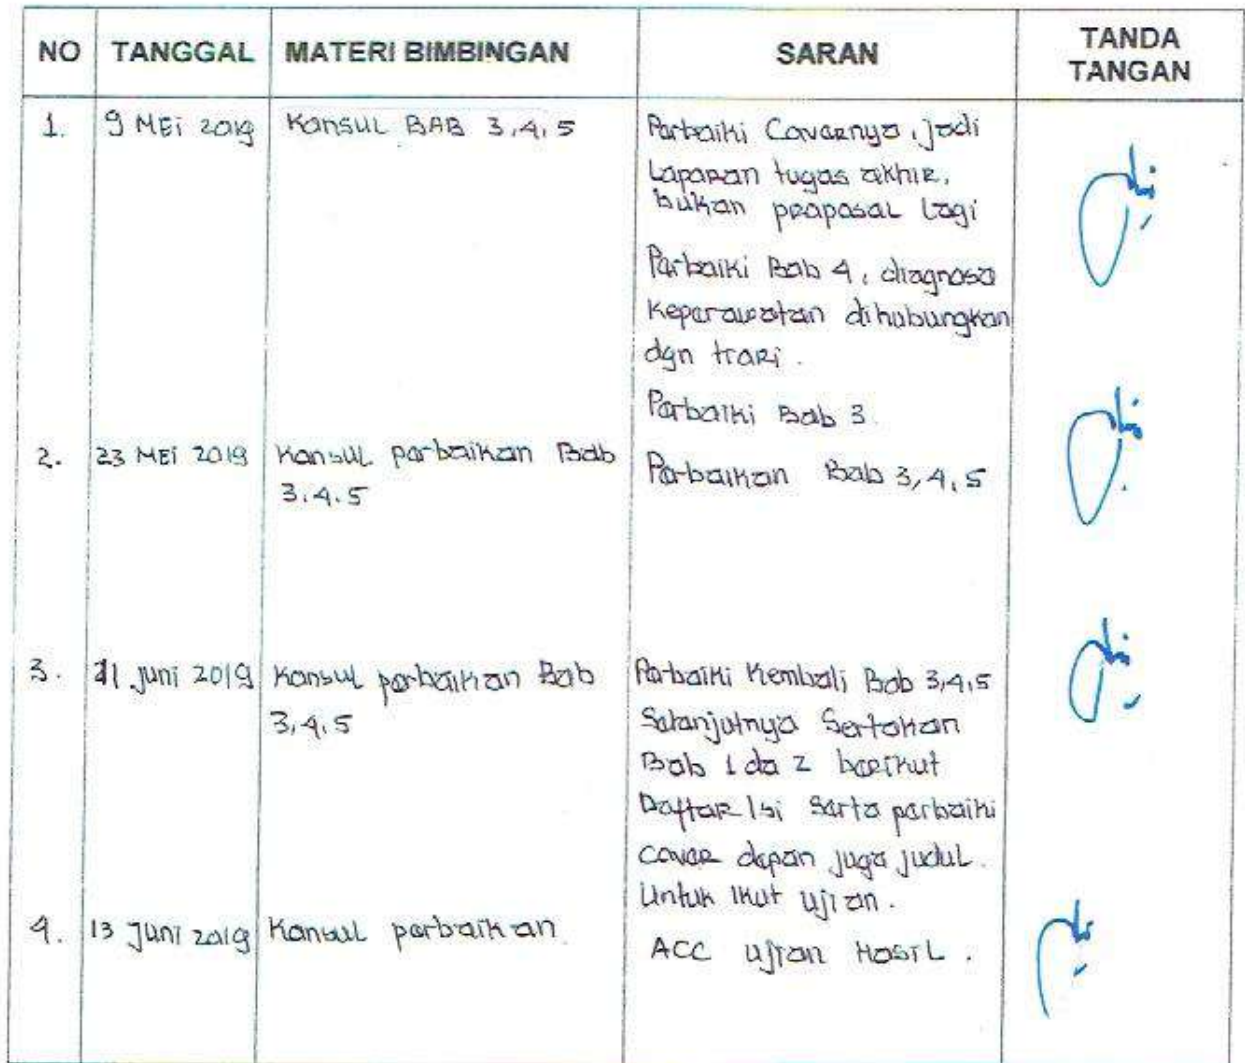 NO TANGGAL MATERI BIMBINGAN SARAN TANDA TANGAN
1. 9 MEi 2019 Konsul BAB 3,4,5 Perbaiki Covernya, jadi
Laporan tugas akhir,
bukan proposal lagi
Perbaiki Bab 4, diagnosa
Keperawatan dihubungkan
dgn teori.
Perbaiki Bab 3.
2. 23 MEi 2019 Konsul perbaikan Bab Perbaikan Bab 3,4,5
3.4.5
3. 11 juni 2019 Konsul perbaikan Bab Perbaiki Kembali Bab 3,4,5
3,4,5 Selanjutnya Sertakan
Bab 1 da 2 berikut
Daftar Isi Serta perbaiki
cover depan juga judul.
Untuk ikut ujian.
4. 13 Juni 2019 Konsul perbaikan. ACC ujian HasiL.